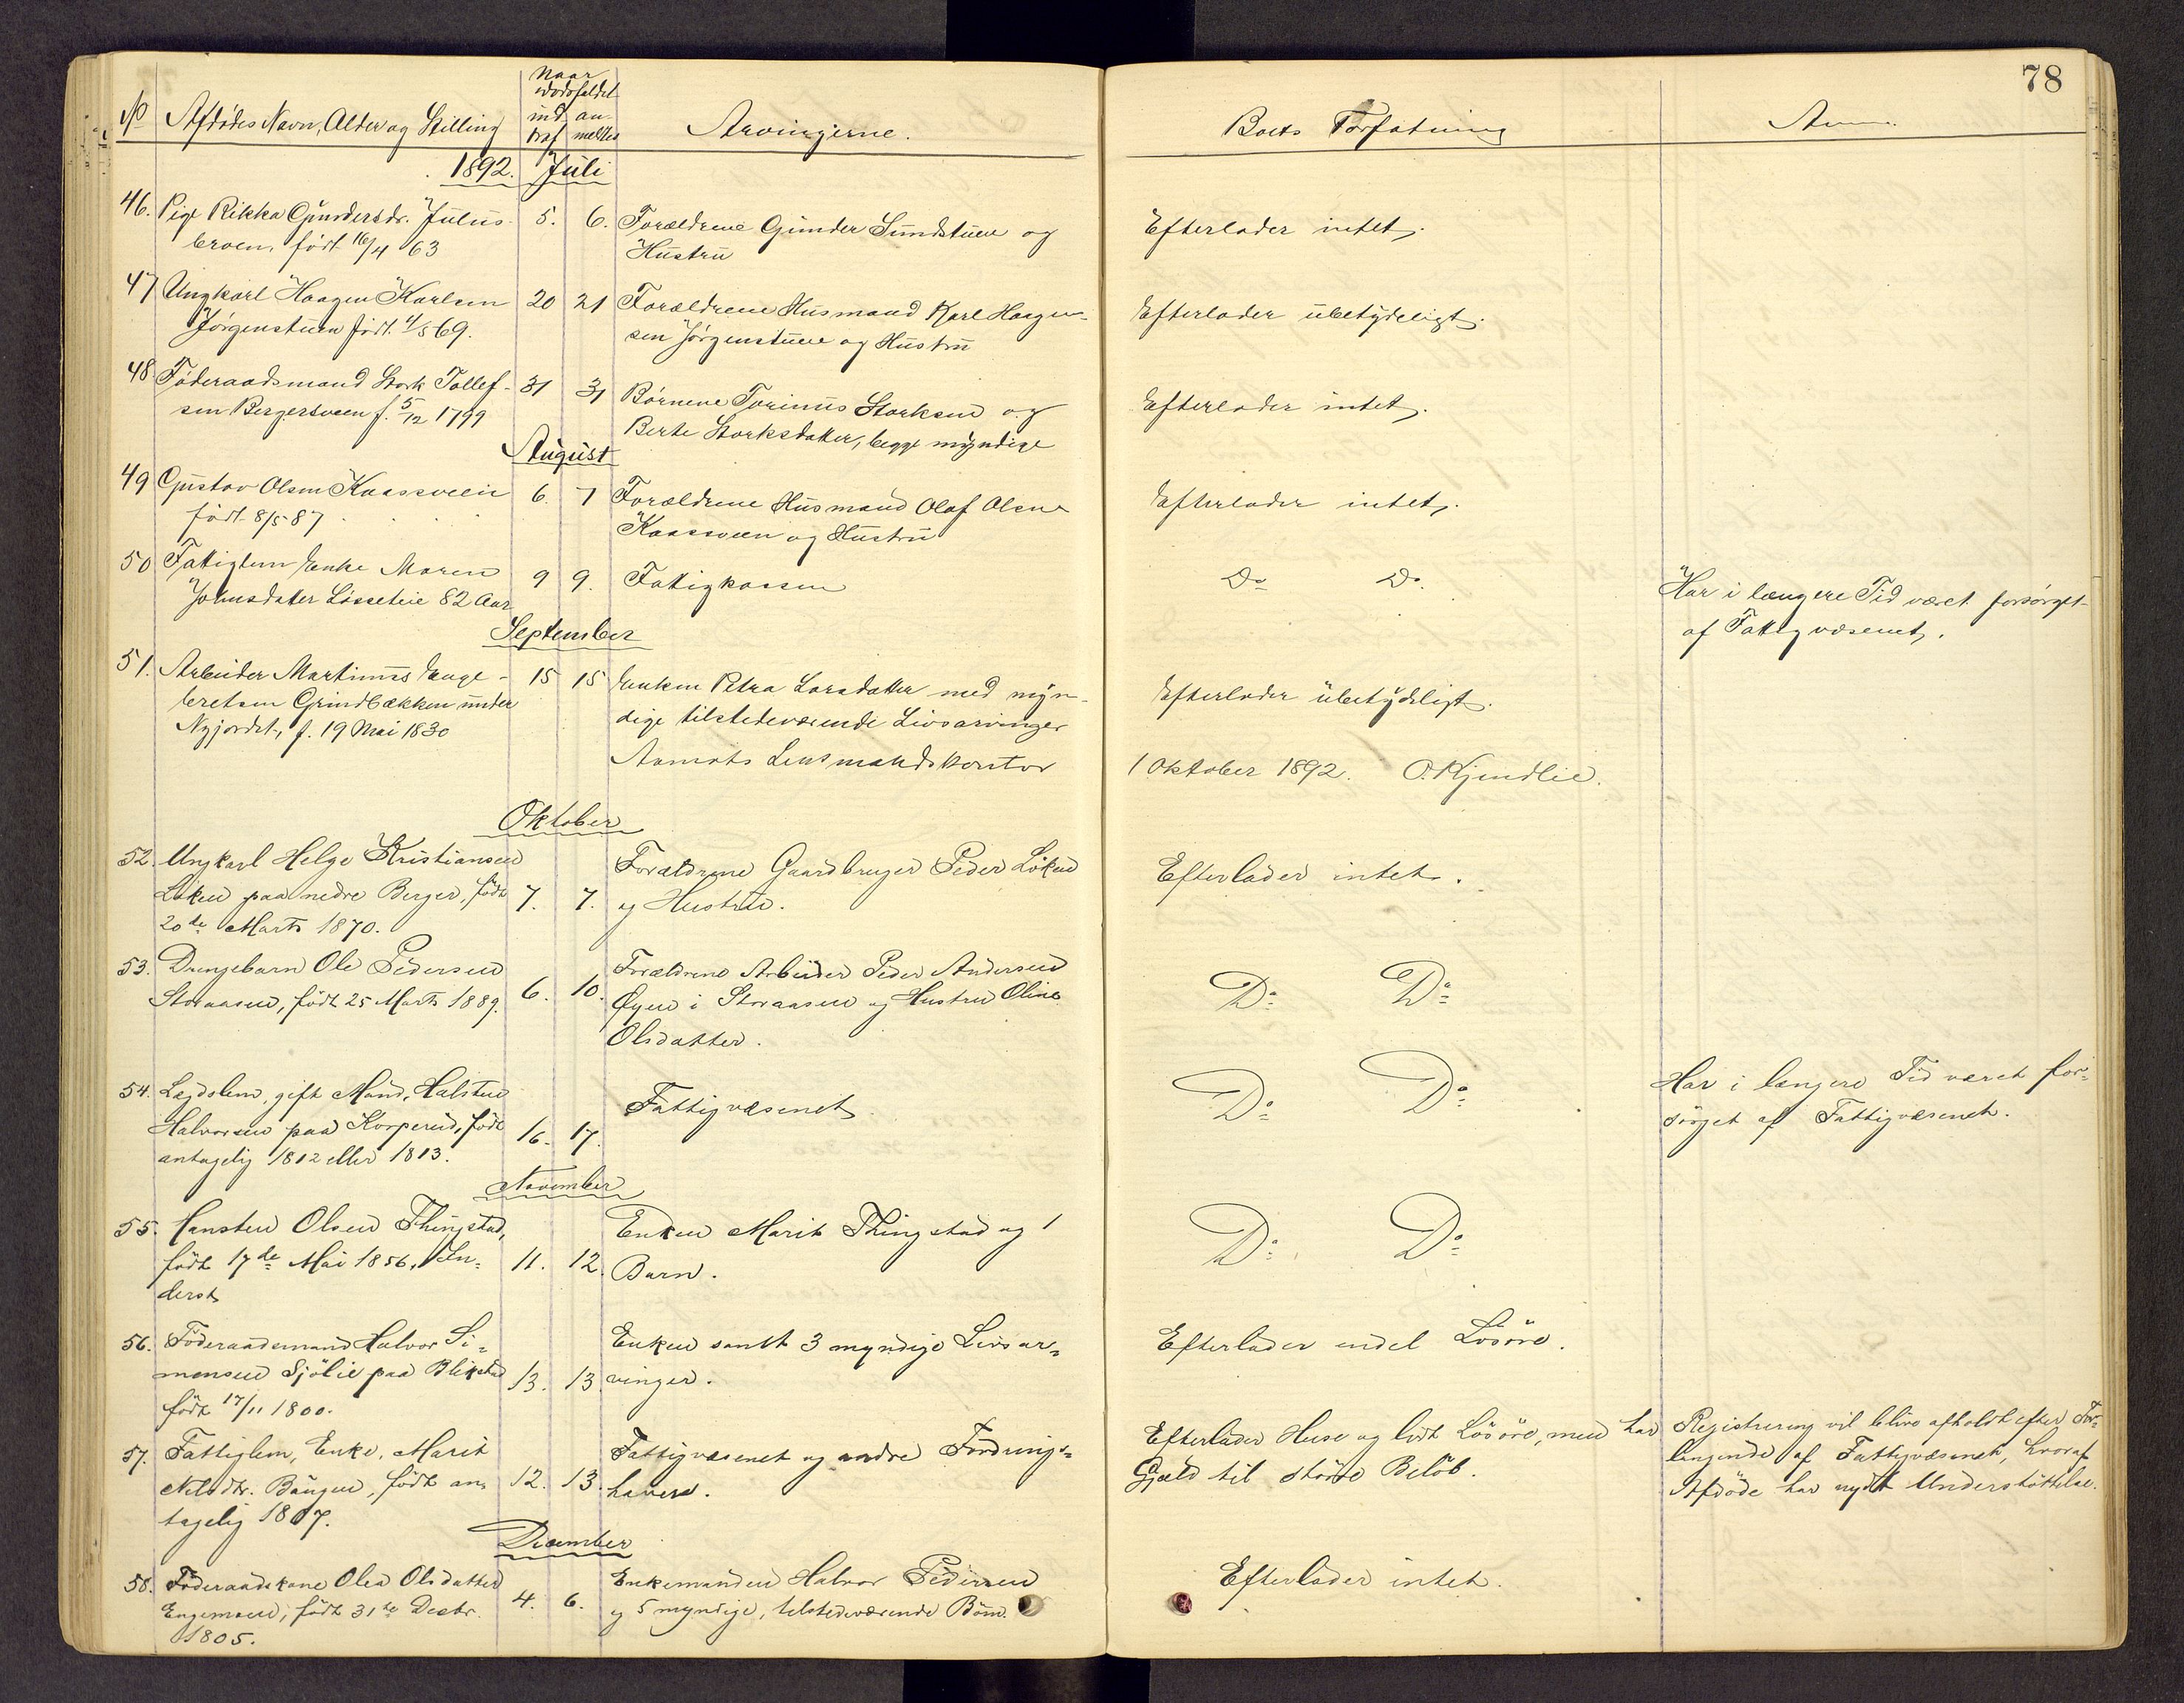 78
No Afdødes Navn, Alder og Stilling
Naar
Dødsfaldet
ind- an-
traf meldtes
Arvingerne.
Boets Forfatning
Anm.
1892. Juli
46. Pige Rikka Gundersdr. Julus-
broen, født 16/4 63
5. 6.
Forældrene Gunder Sundstuen og
Hustru
Efterlader intet.
47 Ungkarl Haagen Karlsen
Jørgenstuen født 4/5 69.
20 21
Forældrene Husmand Karl Haagen-
sen Jørgenstuen og Hustru
Efterlader ubetydeligt.
48 Føderaadsmand Stork Tollef-
sen Bergersveen f. 5/12 1799
31 31
Børnene Torinus Storksen og
Berte Storksdatter, begge myndige
Efterlader intet.
August
49 Gustav Olsen Kaassveen
født 8/5 87
6. 7
Forældrene Husmand Olaf Olsen
Kaassveen og Hustru
Efterlader intet.
50 Fattiglem Enke Maren
Johnsdatter Løsseteie 82 Aar
9 9.
Fattigkassen
Do Do
Har i længere Tid været forsørget
af Fattigvæsenet.
September
51. Arbeider Martinus Enge-
bretsen Grindbækken under
Nyjordet, f. 19 Mai 1830
15 15
Enken Petra Larsdatter med myn-
dige tilstedeværende Livsarvinger
Efterlader ubetydeligt.
Aamots Lensmandskontor
1 Oktober 1892. O. Kjendlie.
Oktober
52. Ungkarl Helge Kristiansen
Løken paa nedre Berger, født
20de Marts 1870.
7. 7.
Forældrene Gaardbruger Peder Löken
og Hustru.
Efterlader intet.
53. Drengebarn Ole Pedersen
Storaasen, født 25 Marts 1889.
6. 10.
Forældrene Arbeider Peder Andersen
Øyen i Storaasen og Hustru Oline
Olsdatter.
Do Do
54. Lægdslem, gift Mand, Halsten
Halvorsen paa Korperud, født
antagelig 1812 eller 1813.
16. 17.
Fattigvæsenet
Do Do
Har i længere Tid været for-
sørget af Fattigvæsenet.
November
55. Hansten Olsen Thingstad,
født 17de Mai 1856, In-
derst
11. 12.
Enken Marit Thingstad og 1
Barn.
Do Do
56. Föderaadsmand Halvor Si-
monsen Sjölie paa Blikstad
født 17/11 1800.
13. 13.
Enken samt 3 myndige Livsar-
vinger.
Efterlader endel Lösöre.
57. Fattiglem, Enke, Marit
Nilsdtr. Bangen, født an-
tagelig 1807.
12. 13.
Fattigvæsenet og andre Fordrings-
havere.
Efterlader Huse og lidt Lösöre, men har
Gjæld til större Belöb.
Registrering vil blive afholdt efter For-
langende af Fattigvæsenet, hvoraf
Afdöde har nydt Understöttelse.
December
58. Föderaadskone Olea Olsdatter
Engemoen, født 31te Decbr.
1805.
4. 6.
Enkemanden Halvor Pedersen
og 5 myndige, tilstedeværende Börn.
Efterlader intet.